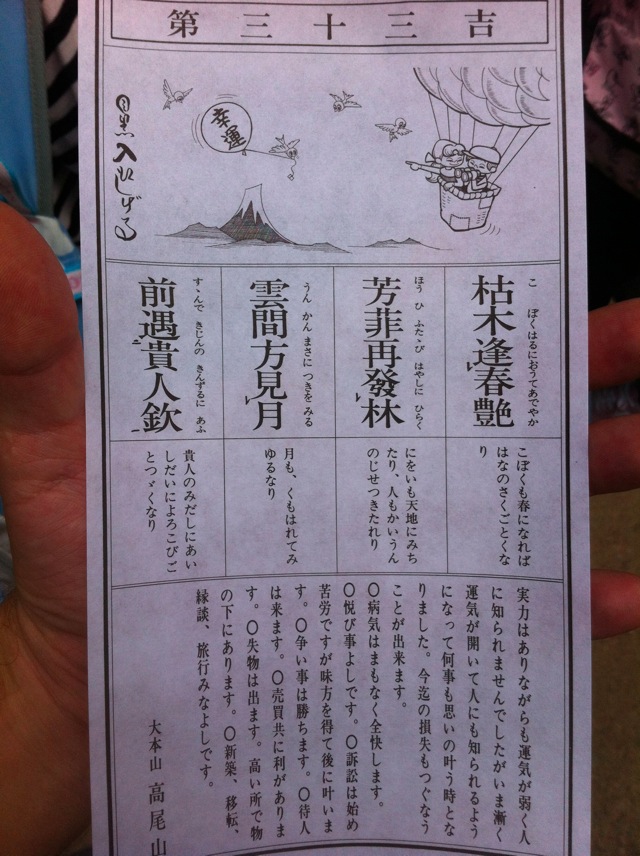 第三十三吉
幸運
こ ぼくはるにおうてあでやか
枯木逢レ春艶
こぼくも春になれば
はなのさくごとくな
り
ほう ひ ふたゝび はやしに ひらく
芳菲再發レ林
にをいも天地にみち
たり、人もかいうん
のじせつきたれり
うん かん まさに つきを みる
雲間方見レ月
月も、くもはれてみ
ゆるなり
すゝんで きじんの きんするに あふ
前遇二貴人欽一
貴人のみだしにあい
しだいによろこびご
とつゞくなり
実力はありながらも運気が弱く人
に知られませんでしたがいま漸く
運気が開いて人にも知られるよう
になって何事も思いの叶う時とな
りました。今迄の損失もつぐなう
ことが出来ます。
〇病気はまもなく全快します。
〇悦び事よしです。〇訴訟は始め
苦労ですが味方を得て後に叶いま
す。〇争い事は勝ちます。〇待人
は来ます。〇売買共に利がありま
す。〇失物は出ます。高い所で物
の下にあります。〇新築、移転、
縁談、旅行みなよしです。
大本山 高尾山